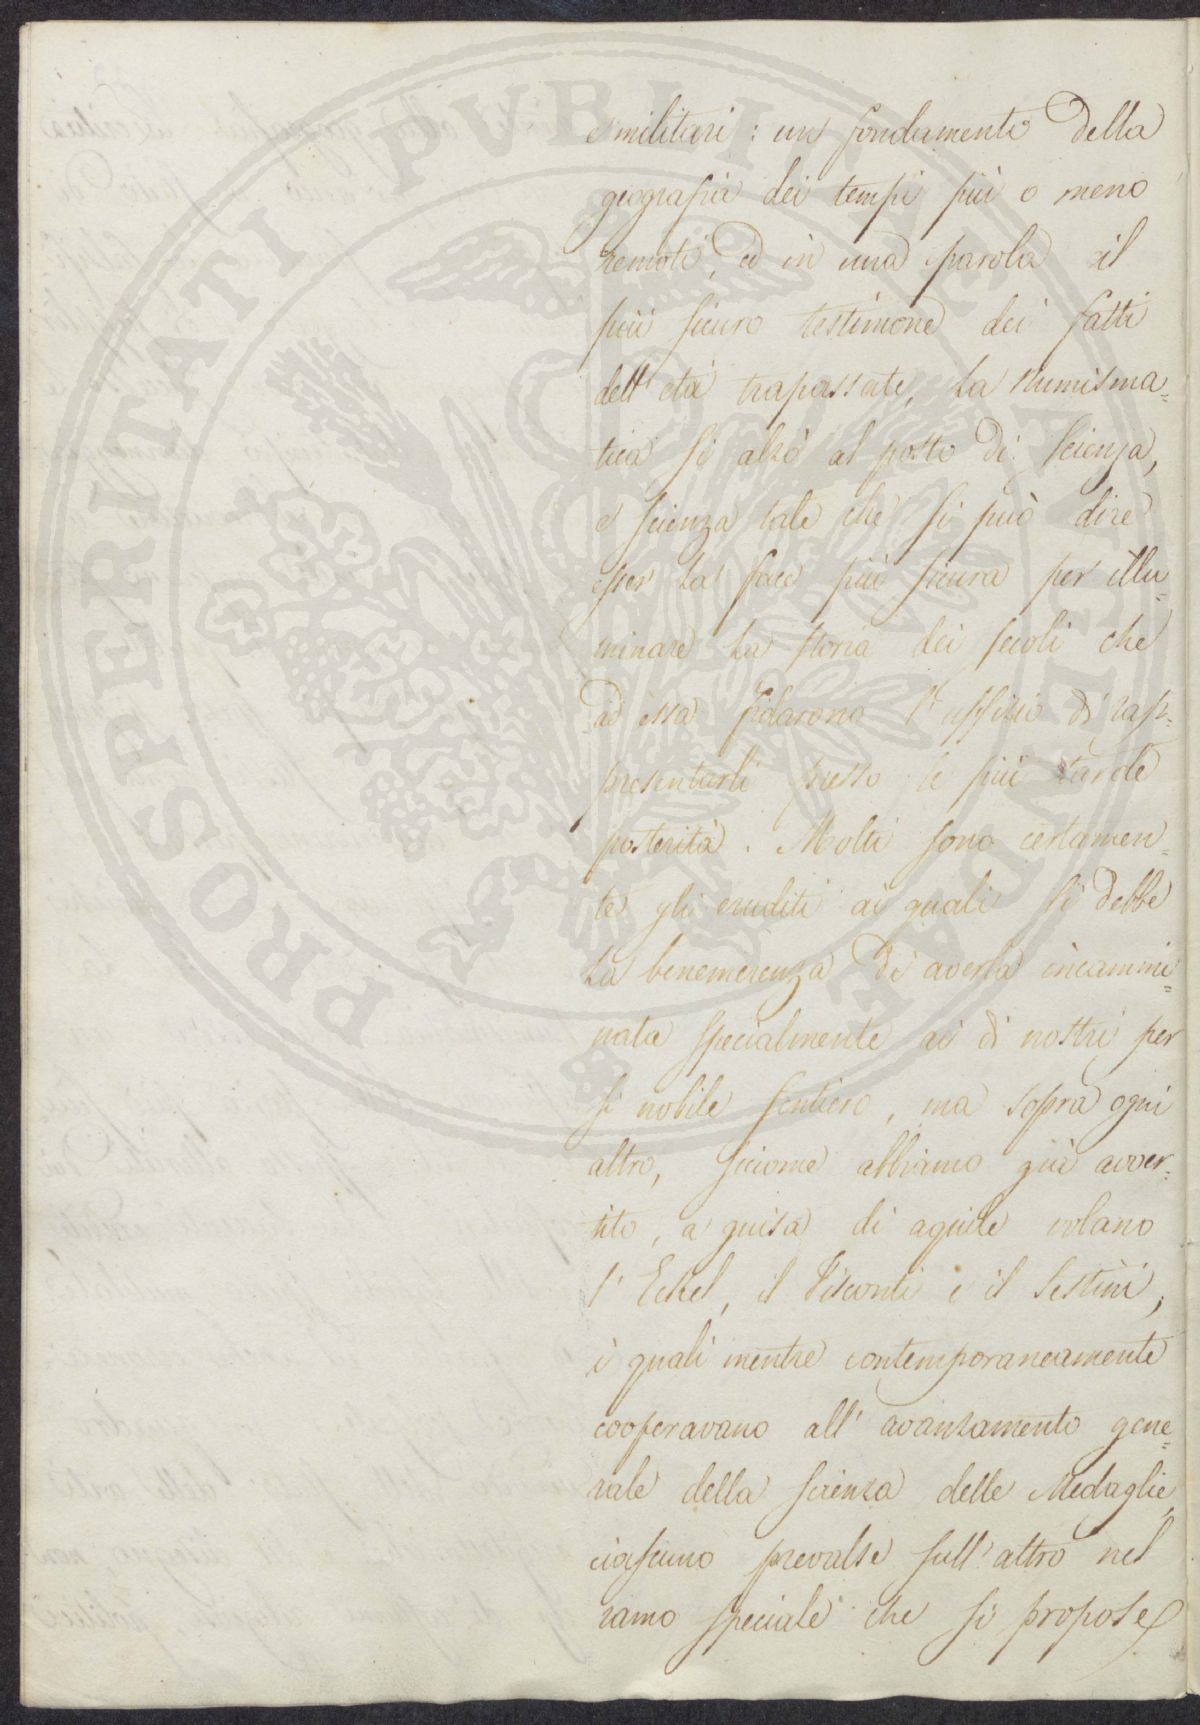 e militari : un fondamento della
geografia dei tempi più o meno
remoti, ed in una parola il
più sicuro testimone dei fatti
dell'età trapassate, La Numisma=
tica si alzò al posto di Scienza,
e scienza tale che si può dire
esser la face più sicura per illu=
minare la storia dei secoli che
ad essa fidarono l'uffizio di rap=
presentarli presso le più tarde
posterità. Molti sono certamen=
te gli eruditi ai quali si debbe
la benemerenza di averla incammi=
nata specialmente ai dì nostri per
sì nobile sentiero, ma sopra ogni
altro, siccome abbiamo già avver=
tito, a guisa di aquile volano
l'Eckel, il Visconti e il Sestini,
i quali mentre contemporaneamente
cooperavano all'avanzamento gene=
rale della scienza delle Medaglie,
ciascuno prevalse sull'altro nel
ramo speciale che si propose
PROSPERITATI PVBLICAE AVGENDAE